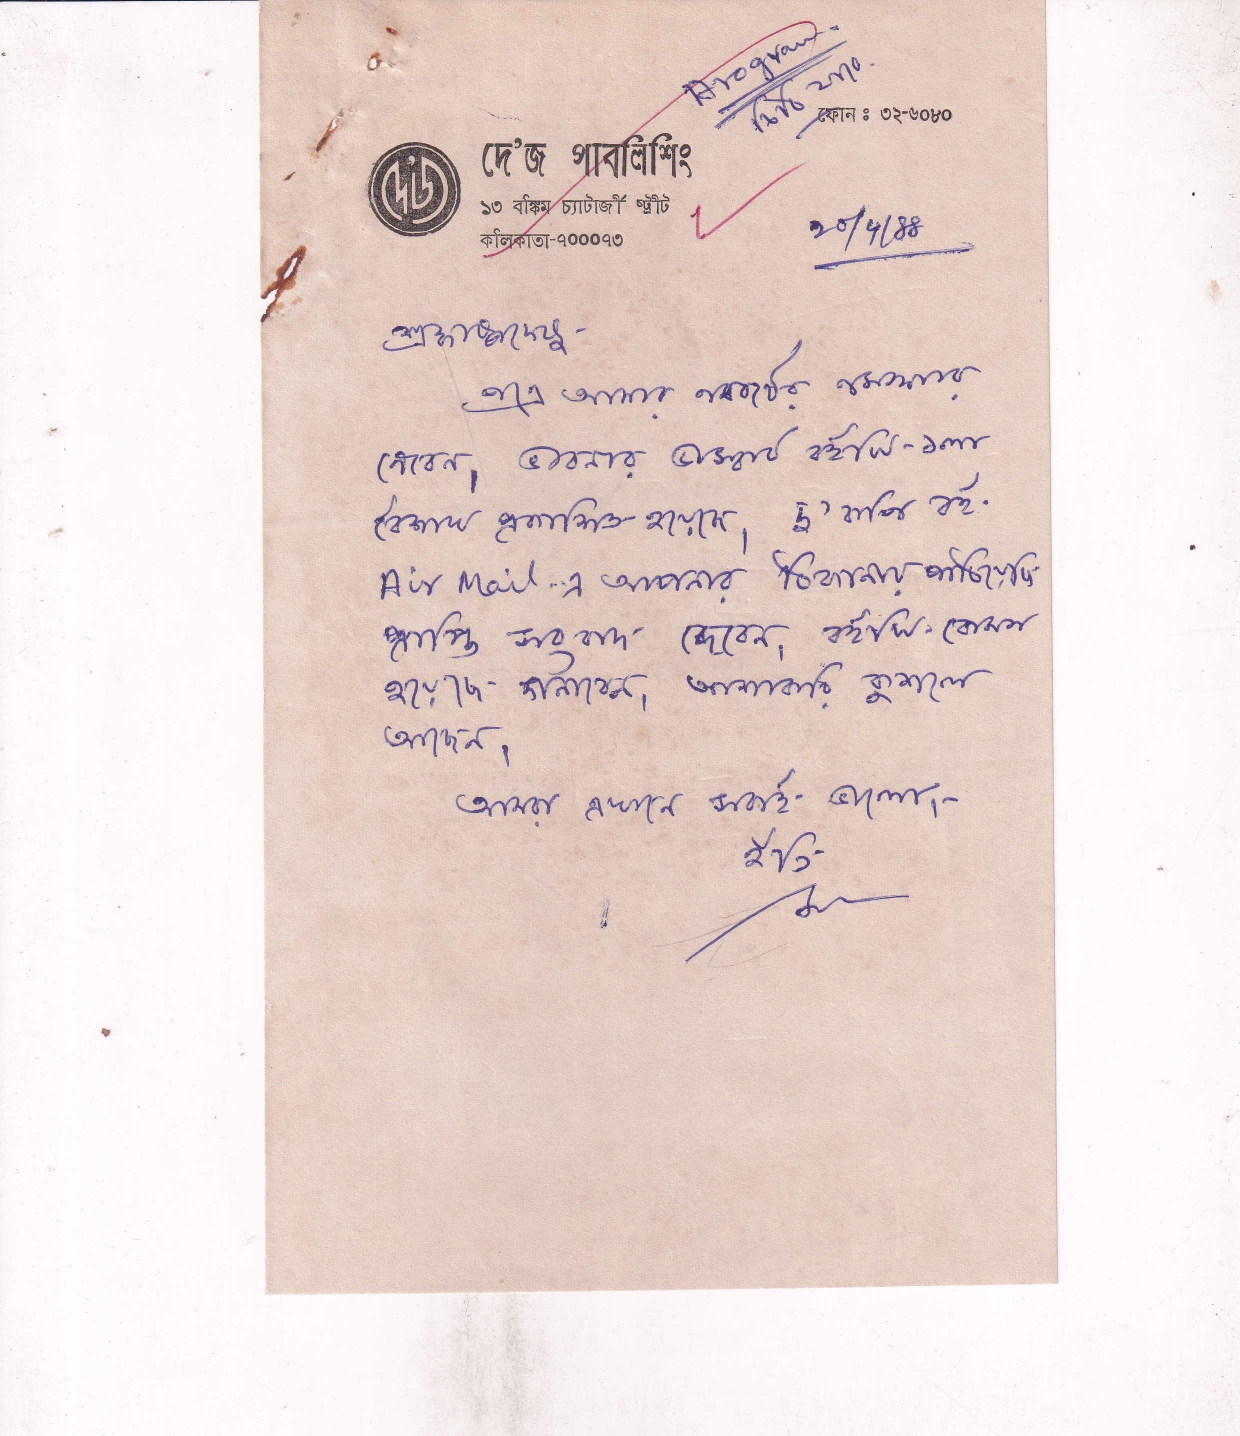 Arogram.
চিঠি যাবে.
ফোন : ৩২-৬০৮০
দে'জ
দে'জ পাবলিশিং
১৩ বঙ্কিম চ্যাটার্জী স্ট্রীট
কলিকাতা-৭০০০৭৩
শ্রদ্ধাস্পদেষু-
পত্রে আমার নববর্ষের নমস্কার
নেবেন। ভাবনার ভাস্কর্য বইটি- ১লা
বৈশাখ প্রকাশিত হয়েছে। দু' কপি বই-
Air Mail-এ আপনার ঠিকানায় পাঠিয়েছি
প্রাপ্তি সংবাদ দেবেন। বইটি- কেমন
হয়েছে জানাবেন। আশাকরি কুশলে
আছেন।
আমরা এখানে সবাই- ভালো।-
ইতি-